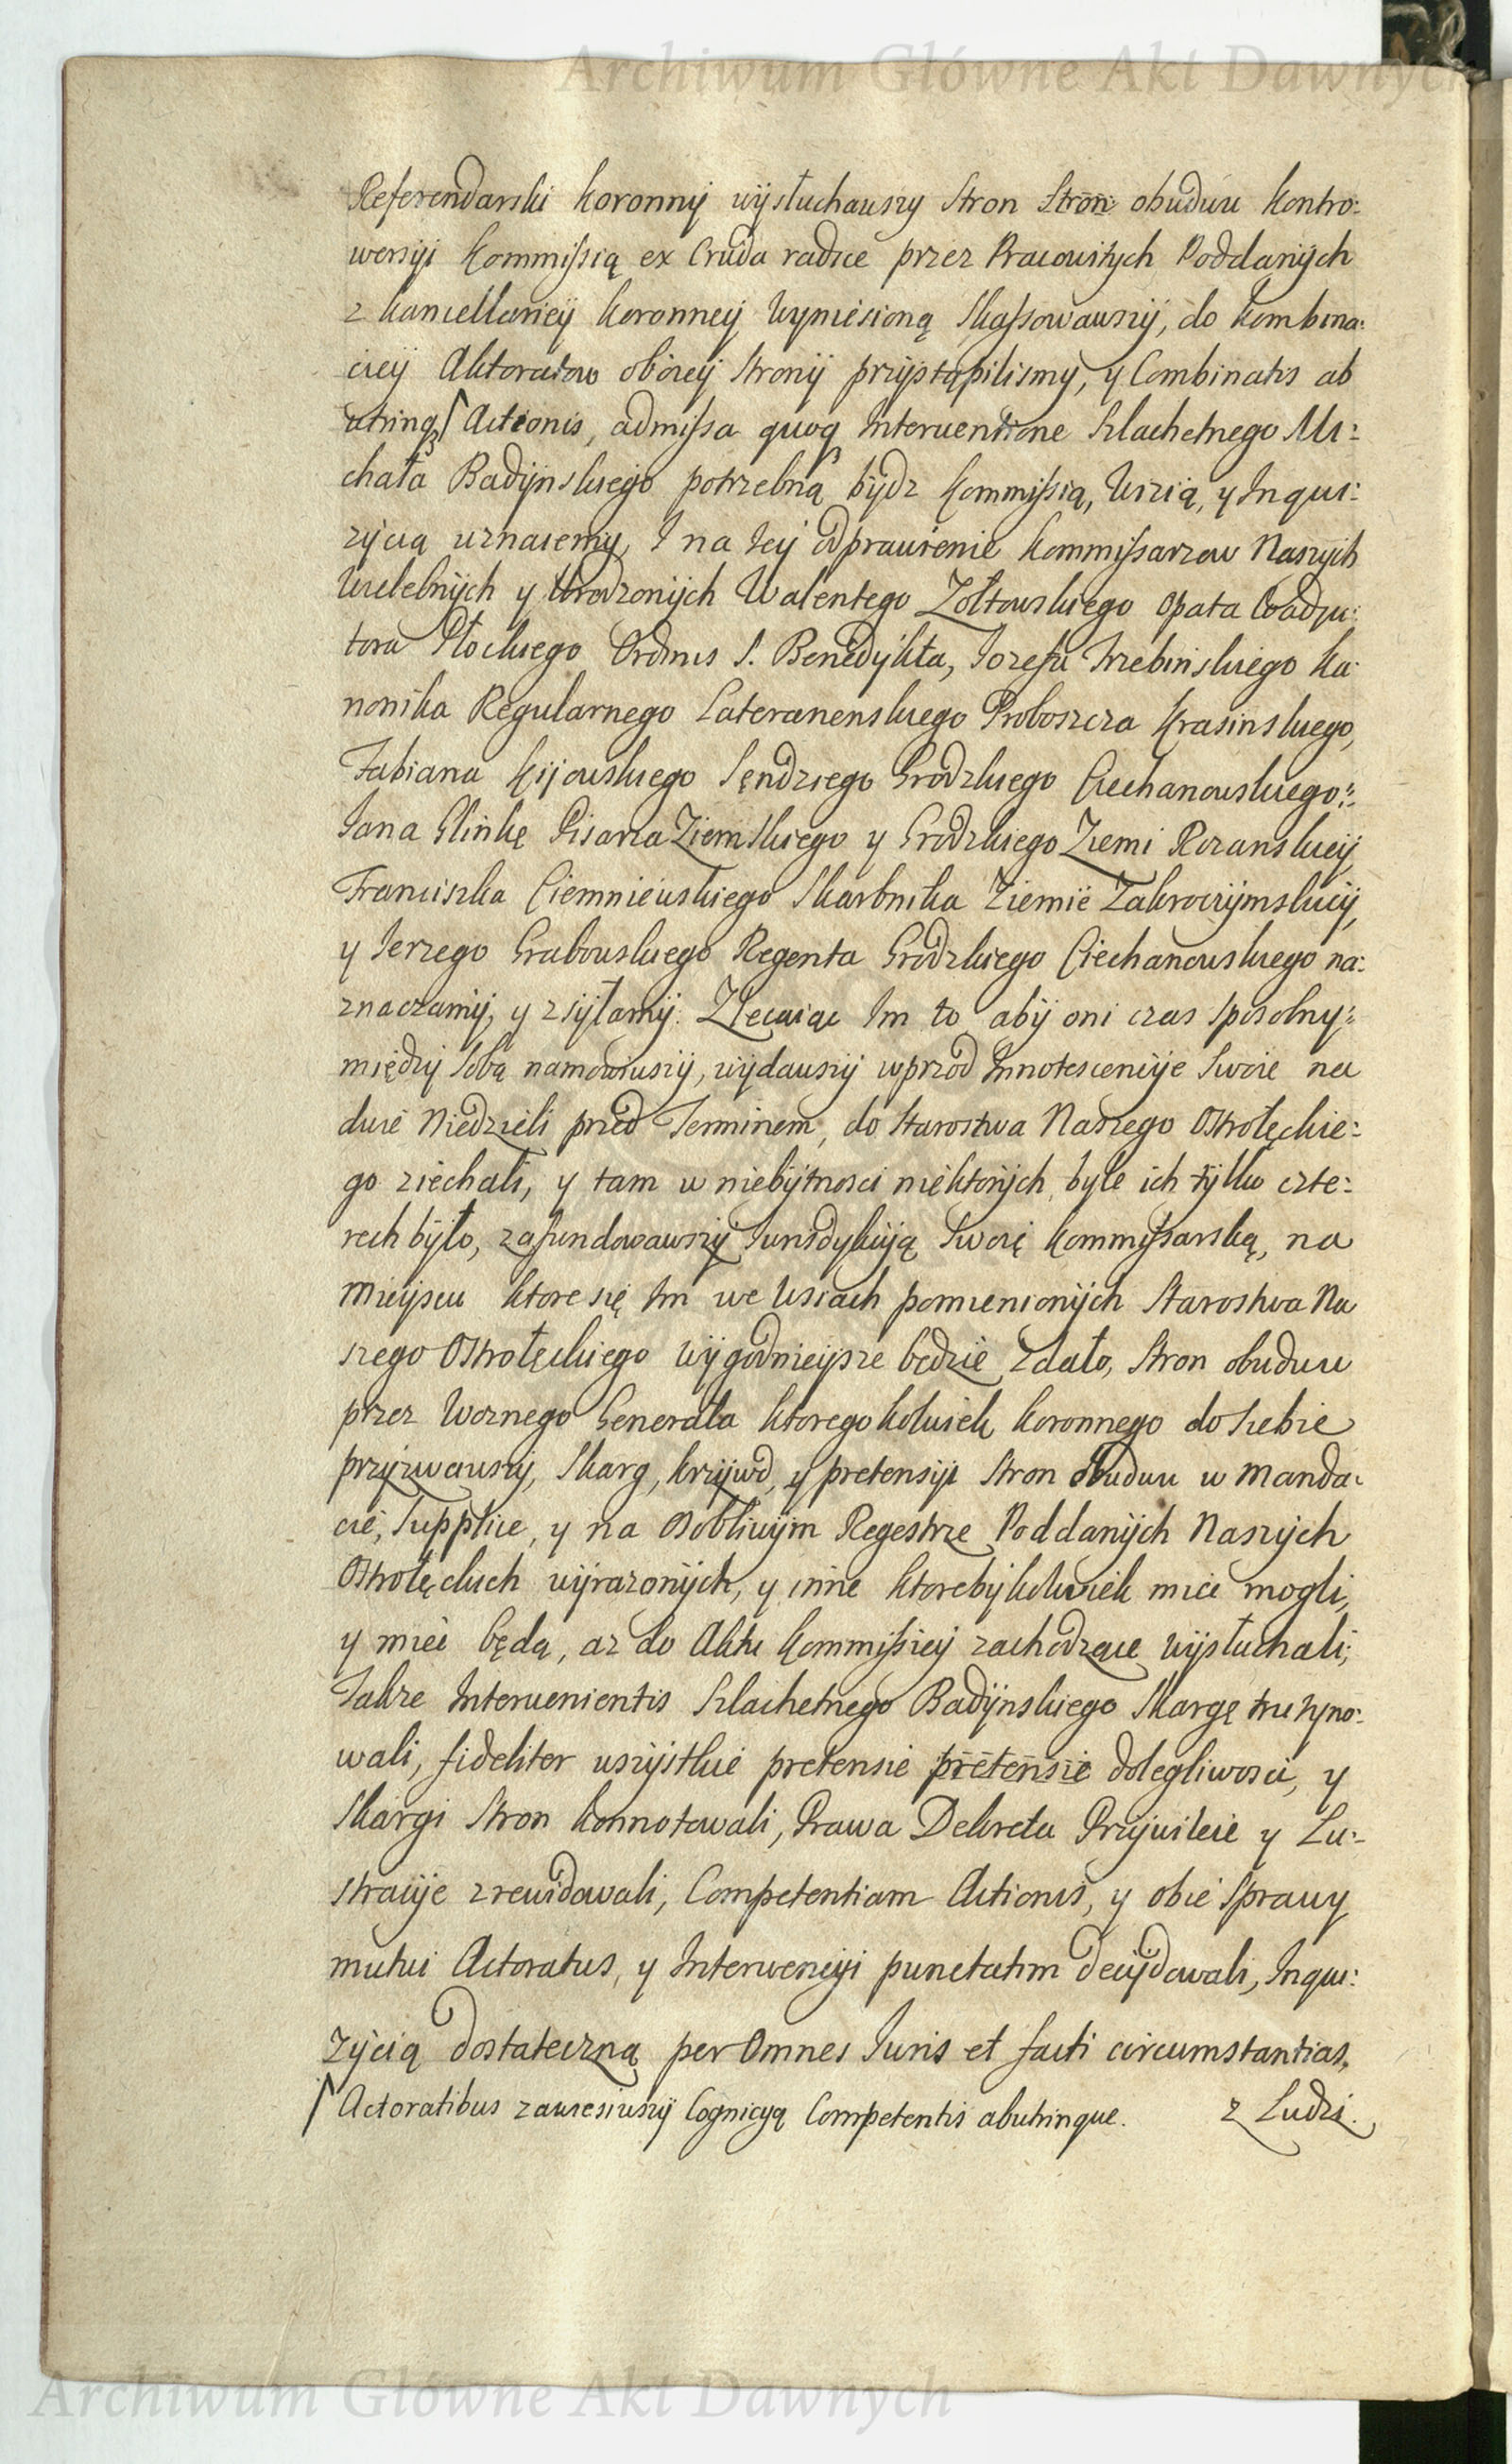 Archiwum Główne Akt Dawnych
Referendarski Koronny wysłuchawszy Stron Stron: obudwu kontro:
wersyi Kommissią ex Cruda radice przez Pracowitych Poddanych
z Kancellaryey Koronney wyniesioną Skassowawszy, do kombina:
cyey Aktoratow oboiey strony przystąpilismy, y Combinatis ab
utrinq Actionis, admissa quoq Interventione Szlachetnego Mi:
chała Badynskiego potrzebną bydz Kommissią, Wizią, y Inqui:
zycią uznaiemy, I na Iey odprawienie Kommissarzow Naszych
Wielebnych y Urodzonych Walentego Zołtowskiego Opata Coadju:
tora Płockiego Ordinis S. Benedykta, Jozefa Trzebinskiego Ka:
nonika Regularnego Lateranenskiego Proboszcza Krasinskiego,
Fabiana Kijowskiego Sęndziego Grodzkiego Ciechanowskiego:
Jana Glinkę Pisarza Ziemskiego y Grodzkiego Ziemi Rozanskiey
Franciszka Ciemniewskiego Skarbnika Ziemie Zakroczymskiey,
y Jerzego Grabowskiego Regenta Grodzkiego Ciechanowskiego na:
znaczamy, y zsyłamy. Zlecaiąc Im to, aby oni czas sposobny:
między sobą namowiwszy, wydawszy wprzod Innotescencye Swoie na
dwie Niedzieli przed Terminem, do Starostwa Naszego Ostrołęckie:
go ziechali, y tam w niebytnosci niektorych, byle ich tylko czte:
rech było, zafundowawszy Jurisdykcyją Swoię Kommissarską, na
Mieyscu ktore się Im we Wsiach pomienionych Starostwa Na
szego Ostrołęckiego wygodnieysze będzie zdało, Stron obudwu
przez Woznego Generała ktoregokolwiek Koronnego do Siebie
przyzwawszy, Skarg, krzywd, y pretensyi Stron obudwu w Manda:
cie, Supplice, y na Osobliwym Regestrze Poddanych Naszych
Ostrołęckich wyrazonych, y inne ktorebykolwiek miec mogli,
y miec będą, az do Aktu Kommissiey zachodzące wysłuchali;
Takze Intervenientis Szlachetnego Badynskiego Skargę trutyno:
wali, fideliter wszystkie pretensie pretensie dolegliwosci, y
Skargi Stron konnotowali, Prawa Dekreta Przywileie y Lu:
stracye zrewidowali, Competentiam Actionis, y obie Sprawy
mutui Actoratus, y Interwencyi punctatim decydowali, Inqui:
zycią dostateczną per Omnes Iuris et facti circumstantias,
Actoratibus zawiesiwszy Cognicyą Competentis abutrinque.
z Ludzi.
Archiwum Główne Akt Dawnych